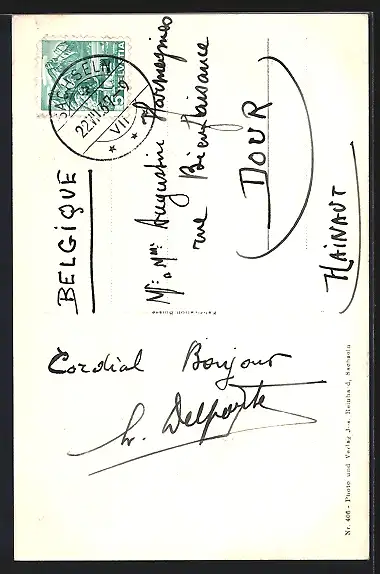 SACHSELN
22.VII.37
VII
HELVETIA
5
Mr. & Mme Augustin Harmegnies
rue Bienfaisance
DOUR
HAINAUT
BELGIQUE
Cordial Bonjour
Delporte
Nr. 406 - Photo und Verlag Jos. Reinhard, Sachseln